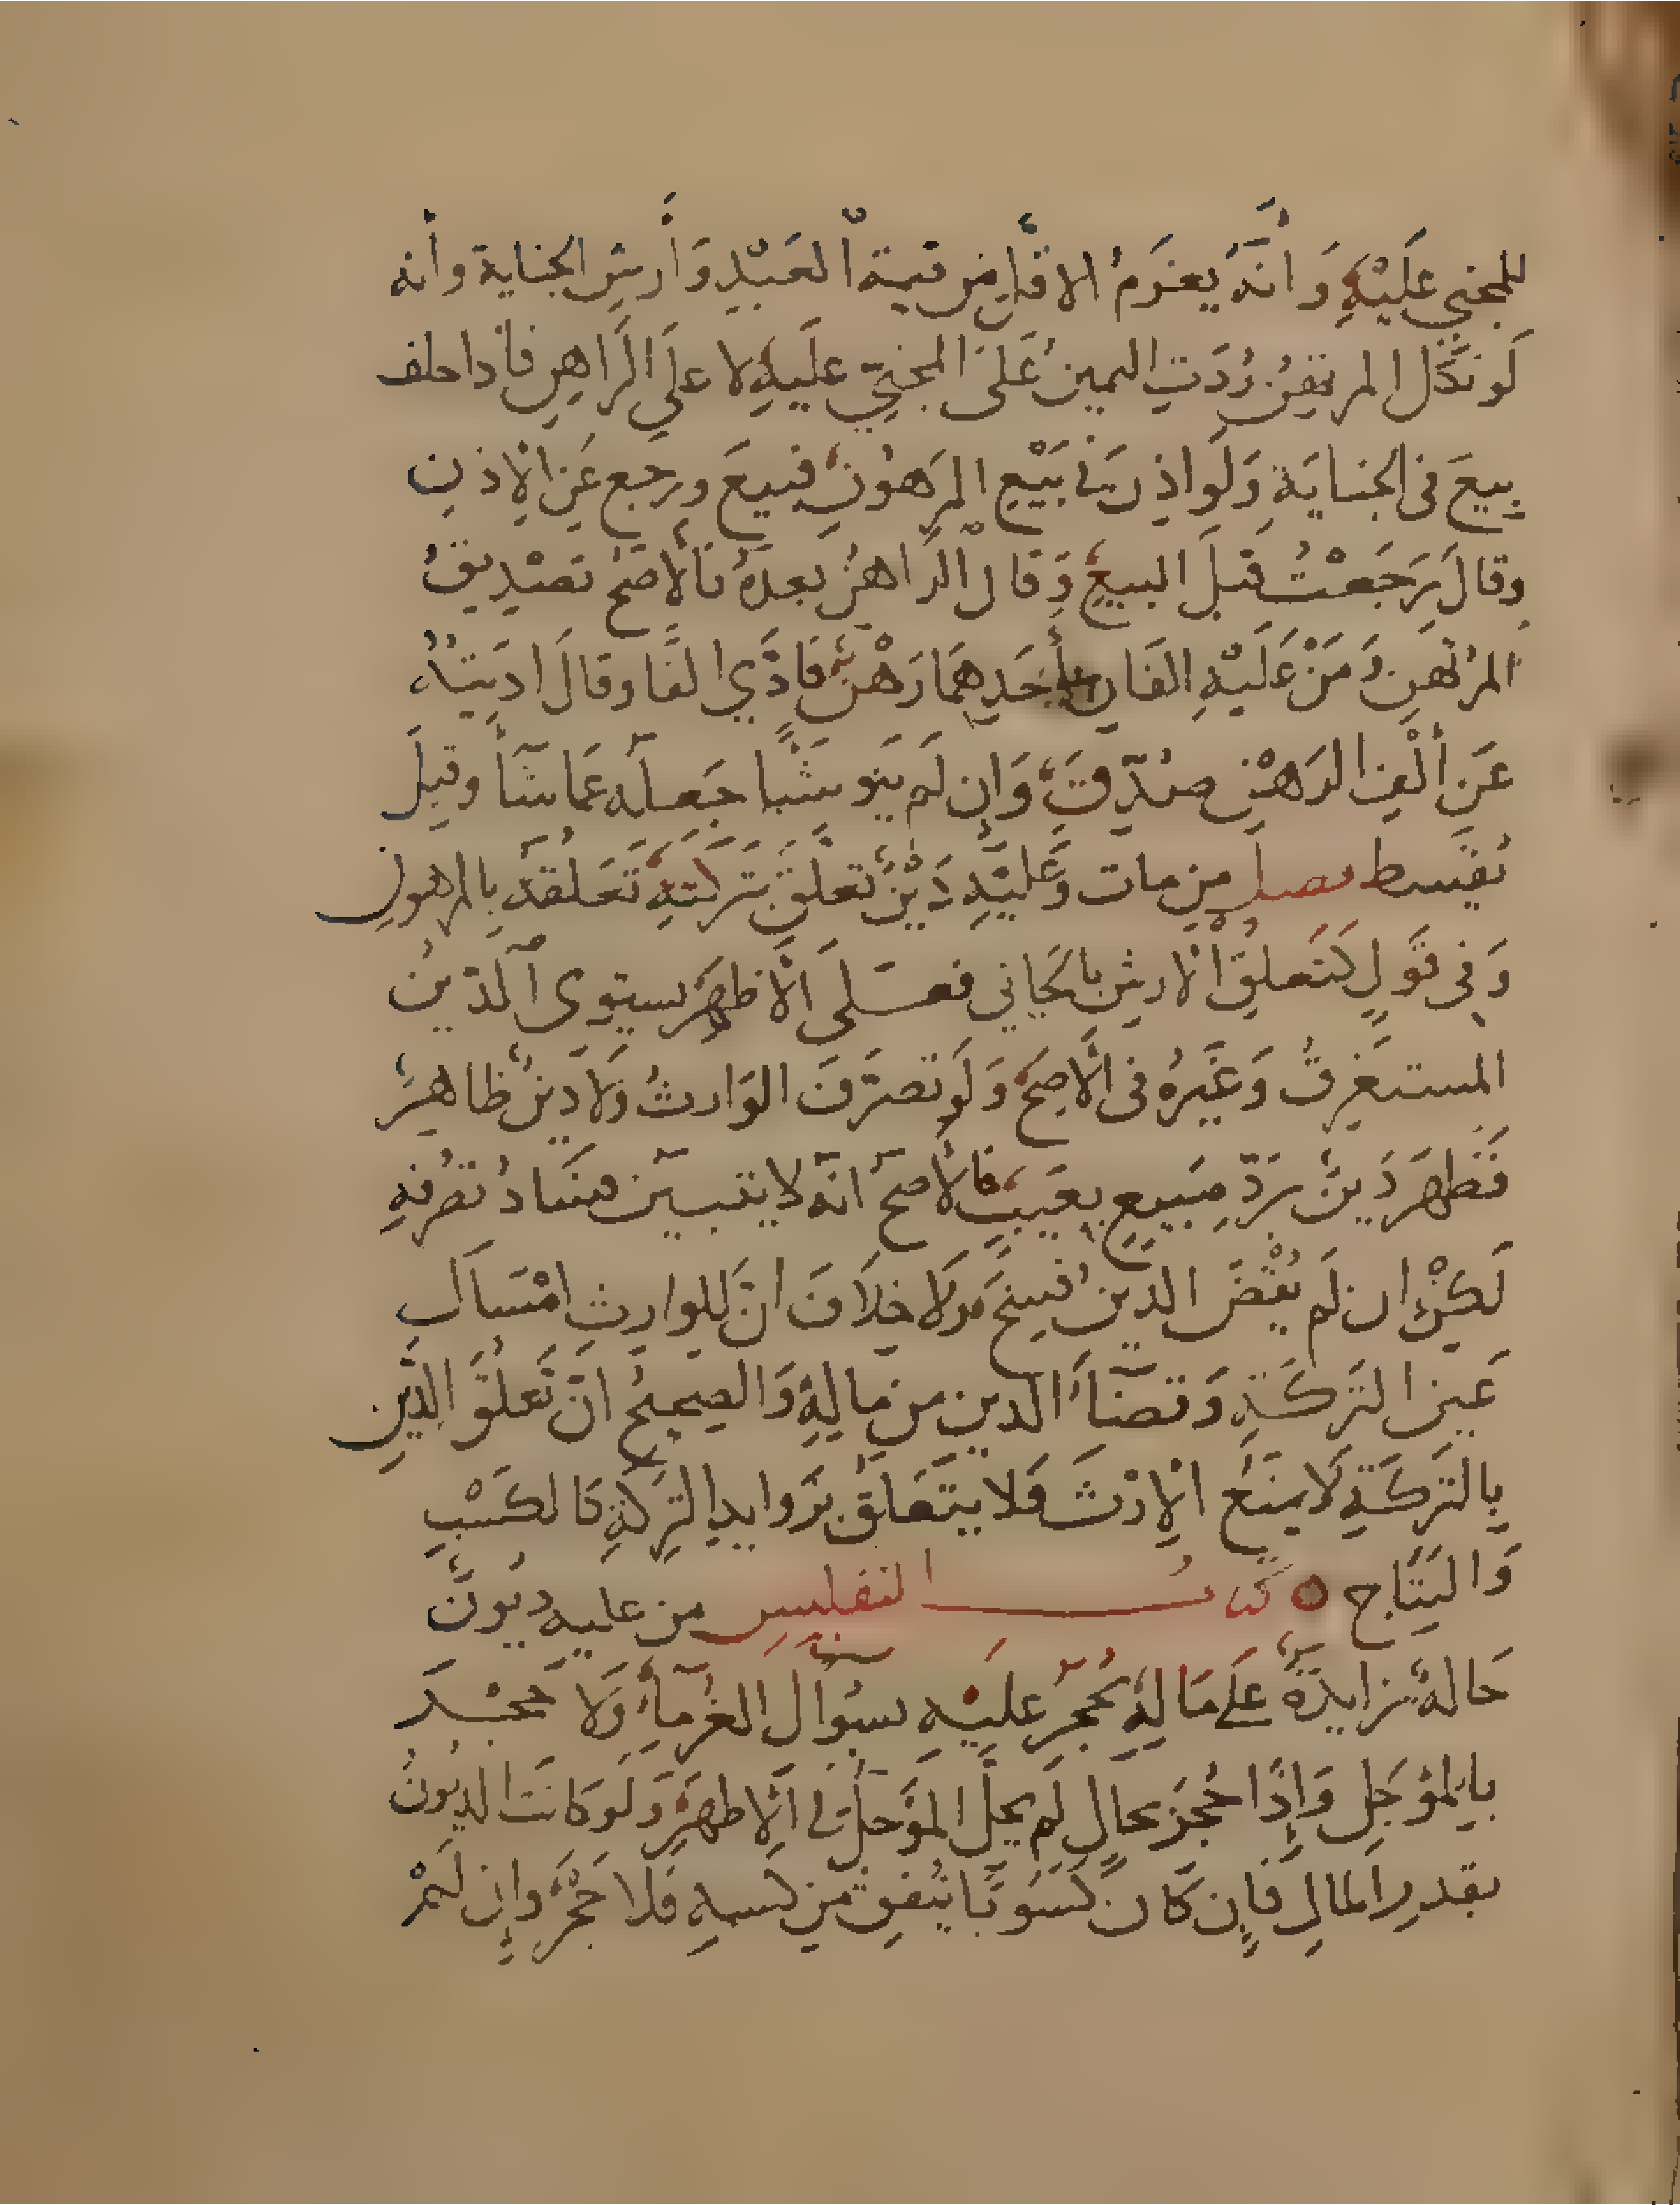 للمجني عَلَيْهِ وَانَّهُ يغرَمُ الاقل من قيمة العَبْدِ وَأرشِ الجناية وأنه
لَو نكَل المرتهنُ رُدَتِ اليمينُ عَلىَ المجنيّ عليهِ لا على الرَاهِنِ فأذا حلف
بِيعَ فى الجنايَةِ وَلَو اذِنَ في بَيْعِ المرَهوُنِ فبيعَ ورجع عَنِ الإذنِ
وقالَ رَجَعْتُ قبلَ البيعِ وَقال الرَاهنُ بعدَهُ فالأصَحُ تصْدِيقُ
المرُتهَنِ وَمَنْ عَلَيْهِ الفَان بأحَدِهمَا رَهْنٌ فادَّي الفًا وقالَ اديتُهُ
عَن ألفِ الرَهْنِ صُدّقَ وَان لَم ينوِ شيْئا جَعَلَه عَما شَآءَ وقيلَ
يُقَسط فصل من مات وَعَليْهِ دَيْنٌ تعلّقَ بتَركَتِهِ تَعَلُقَهُ بالمرهون
وَفى قَولٍ كتَعلقِ الارشِ بالجَاني فعَلى الاَظهَرِ يستوِى الدّينُ
المستغرِقُ وَغَيرُهُ فى الاَصِحّ وَلَو تَصرّفَ الوَارثُ وَلاَ دَينٌ ظاهرٌ
فَظهرَ دَينٌ بردّ مَبِيعٍ بِعَيبٍ فالأصحّ انه لا يتبيّن فسَادُ تصَرفهِ
لَكنْ ان لَم يُقْضَ الدينُ فُسِخَ وَلا خلافَ انّ للوارِثِ امْسَاكَ
عَينِ التَركَةِ وَقضَآءَ الدينِ من مَالِهِ وَالصَحيحُ انّ تَعلقَ الدَّينِ
بالتَركَةِ لاَ يمنَعُ الإرْثَ فَلا يتَعَلقُ بزَوايدِ التركةِ كالكَسْبِ
وَالنِتَاج ه كتابُ التفليسِ من عليه دُيونٌ
حَالةٌ زايدَةٌ عَلى مَالِهِ يُحجَرُ عليْهِ بسؤال الغُرَمآءِ وَلا حَجْرَ
بالمؤجَلِ وَإِذَا حُجِرَ بحالٍ لَم يحلَّ المؤجلُ في الأظهَرِ وَلَو كانَتْ الديُونُ
بقدرِ المالِ فإن كَانَ كسُوبًا ينُفِقُ من كسبهِ فَلا حَجْرَ وإن لَمْ